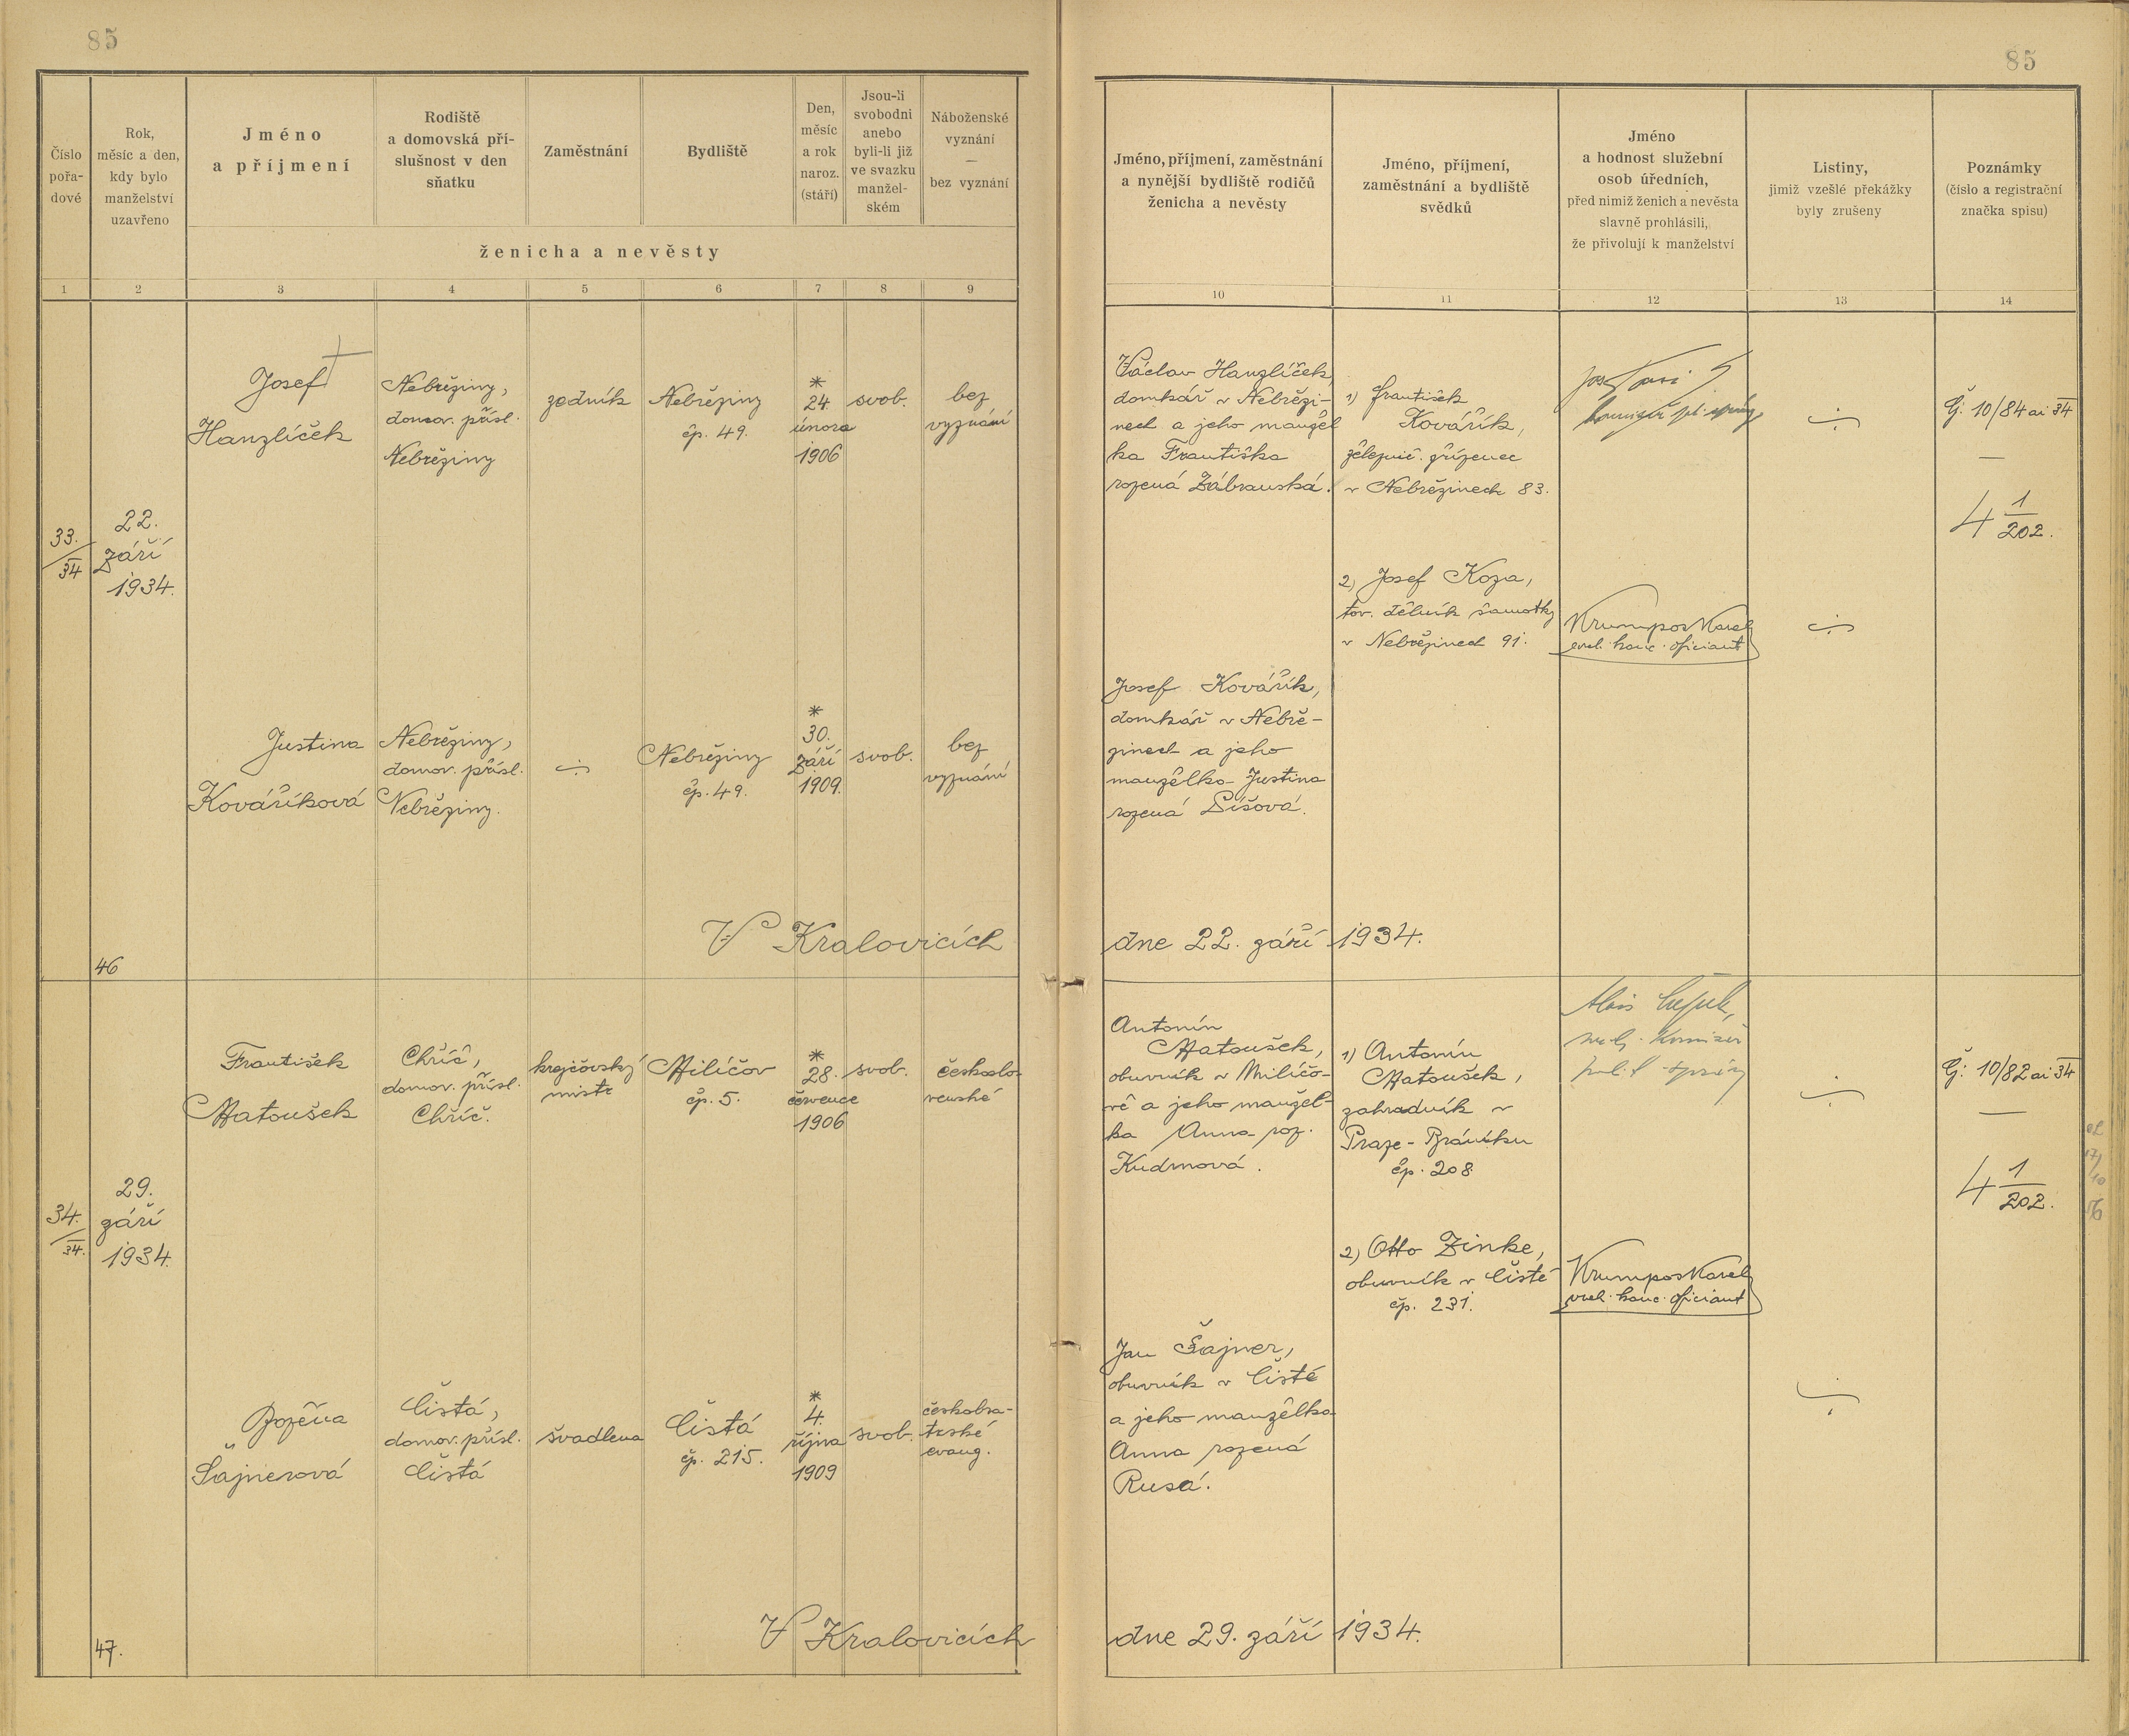 85
85
Číslo
pořa-
dové
Rok,
měsíc a den,
kdy bylo
manželství
uzavřeno
Jméno
a příjmení
Rodiště
a domovská pří-
slušnost v den
sňatku
Zaměstnání
Bydliště
Den,
měsíc
a rok
naroz.
(stáří)
Jsou-li
svobodni
anebo
byli-li již
ve svazku
manžel-
ském
Náboženské
vyznání
—
bez vyznání
ženicha a nevěsty
Jméno, příjmení, zaměstnání
a nynější bydliště rodičů
ženicha a nevěsty
Jméno, příjmení,
zaměstnání a bydliště
svědků
Jméno
a hodnost služební
osob úředních,
před nimiž ženich a nevěsta
slavně prohlásili,
že přivolují k manželství
Listiny,
jimiž vzešlé překážky
byly zrušeny
Poznámky
(číslo a registrační
značka spisu)
1 2 3 4 5 6 7 8 9
10 11 12 13 14
33.
34
22.
září
1934.
Josef
Hanzlíček
Nebřeziny,
domov. přísl.
Nebřeziny
zedník
Nebřeziny
čp. 49.
*
24.
února
1906
svob.
bez
vyznání
Václav Hanzlíček,
domkář v Nebřezi-
nech a jeho manžel
ka Františka
rozená Zábranská.
1) František
Kovářík,
železnič. zřízenec
v Nebřezinech 83.
2) Josef Koza,
tov. dělník šamotky
v Nebřezinech 91.
Krumpos Karel
kanc. oficiant
Čj: 10/84 ai 34
4 1
202.
Justina
Kováříková
Nebřeziny,
domov. přísl.
Nebřeziny.
Nebřeziny
čp. 49.
*
30.
září
1909.
svob.
bez
vyznání
Josef Kovářík,
domkář v Nebře-
zinech a jeho
manželka Justina
rozená Síšová.
V Kralovicích
dne 22. září 1934.
46
34.
34.
29.
září
1934.
František
Matoušek
Chříč,
domov. přísl.
Chříč.
krejčovský
mistr
Milíčov
čp. 5.
*
28.
července
1906
svob.
českoslo-
venské
Antonín
Matoušek,
obuvník v Milíčo-
vě a jeho manžel-
ka Anna roz.
Kudrnová.
1) Antonín
Matoušek,
zahradník v
Praze - Bráníku
čp. 208
2) Otto Zinke,
obuvník v Čisté
čp. 231.
Krumpos Karel
kanc. oficiant
Čj: 10/82 ai 34
4 1
202.
Božena
Šajnerová
Čistá,
domov. přísl.
Čistá
švadlena
Čistá
čp. 215.
*
4.
října
1909
svob.
českobra-
trské
evang.
Jan Šajner,
obuvník v Čisté
a jeho manželka
Anna rozená
Rusá.
V Kralovicích
dne 29. září 1934.
47.